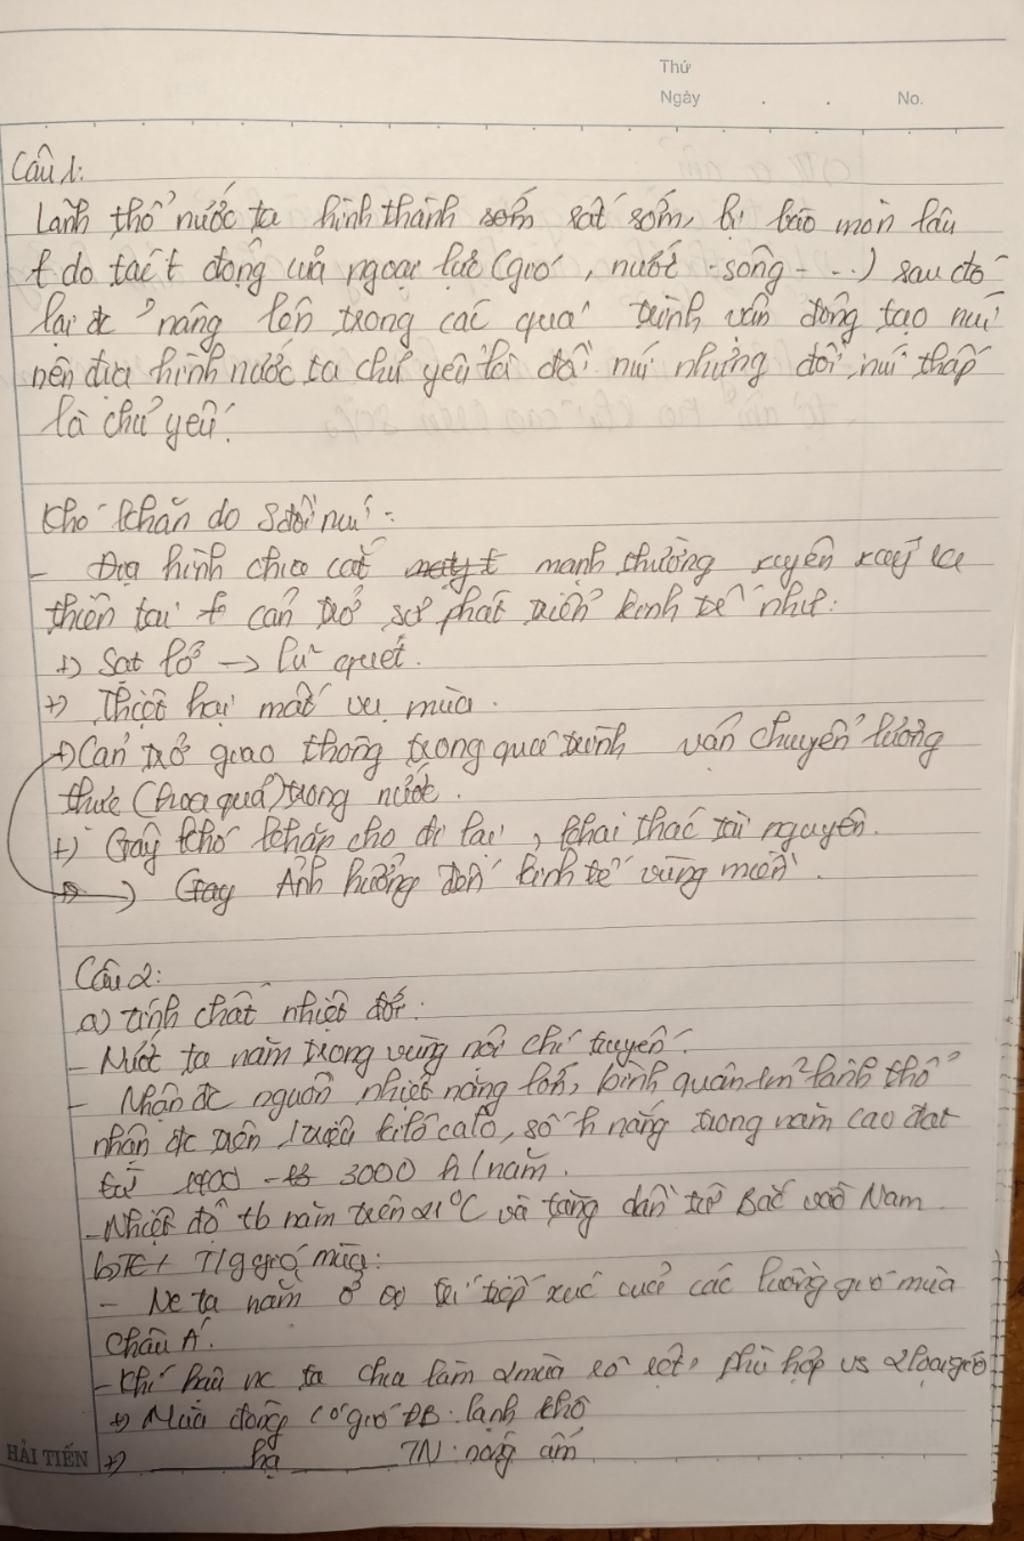 Thứ
Ngày . . No.
Câu 1:
Lãnh thổ nước ta hình thành sớm rất sớm, bị bào mòn lâu
t do tác t động của ngoại lực (gió, nước - sông - ...) sau đó
lại đc nâng lên trong các quá trình vận động tạo núi
nên địa hình nước ta chủ yếu là đồi núi nhưng đồi núi thấp
là chủ yếu.
Khó khăn do đồi núi:
- Địa hình chia cắt mạnh thường xuyên xảy ra
thiên tai cản trở sự phát triển kinh tế như:
+) Sạt lở → lũ quét.
+) Thiệt hại mất vụ mùa.
+) Cản trở giao thông trong quá trình vận chuyển lương
thực (hoa quả) trong nước.
+) Gây khó khăn cho đi lại, khai thác tài nguyên.
→ Gay Ảnh hưởng đến kinh tế vùng miền.
Câu 2:
a) tính chất nhiệt đới:
- Nước ta nằm trong vùng nội chí tuyến.
- Nhận đc nguồn nhiệt năng lớn, bình quân 1m² lãnh thổ
nhận đc trên 1 triệu kilô calo, số h nắng trong năm cao đạt
từ 1400 - 3000 h/năm.
- Nhiệt độ tb năm trên 21°C và tăng dần từ Bắc vào Nam.
b) TC + T/g gió mùa:
- Nc ta nằm ở vị trí tiếp xúc của các luồng gió mùa
Châu Á.
- Khí hậu nc ta chia làm 2 mùa rõ rệt, phù hợp vs 2 loại gió
+) Mùa đông có gió ĐB: lạnh khô
+) ___ hạ ___ TN: nóng ẩm
HẢI TIẾN